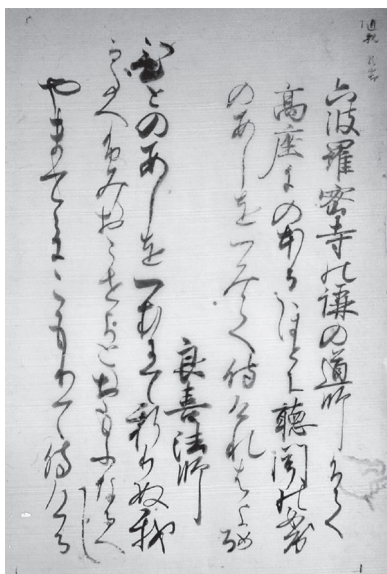 六波羅密寺の講の道師にて
高座にのほるほとに聴聞の女房
のあしをつみ侍けれはよめる
良喜法師
ひとのあしをつむにてしりぬ我
かたへふみおこせよとおもふなるへし
やまてらにこもりて侍ける